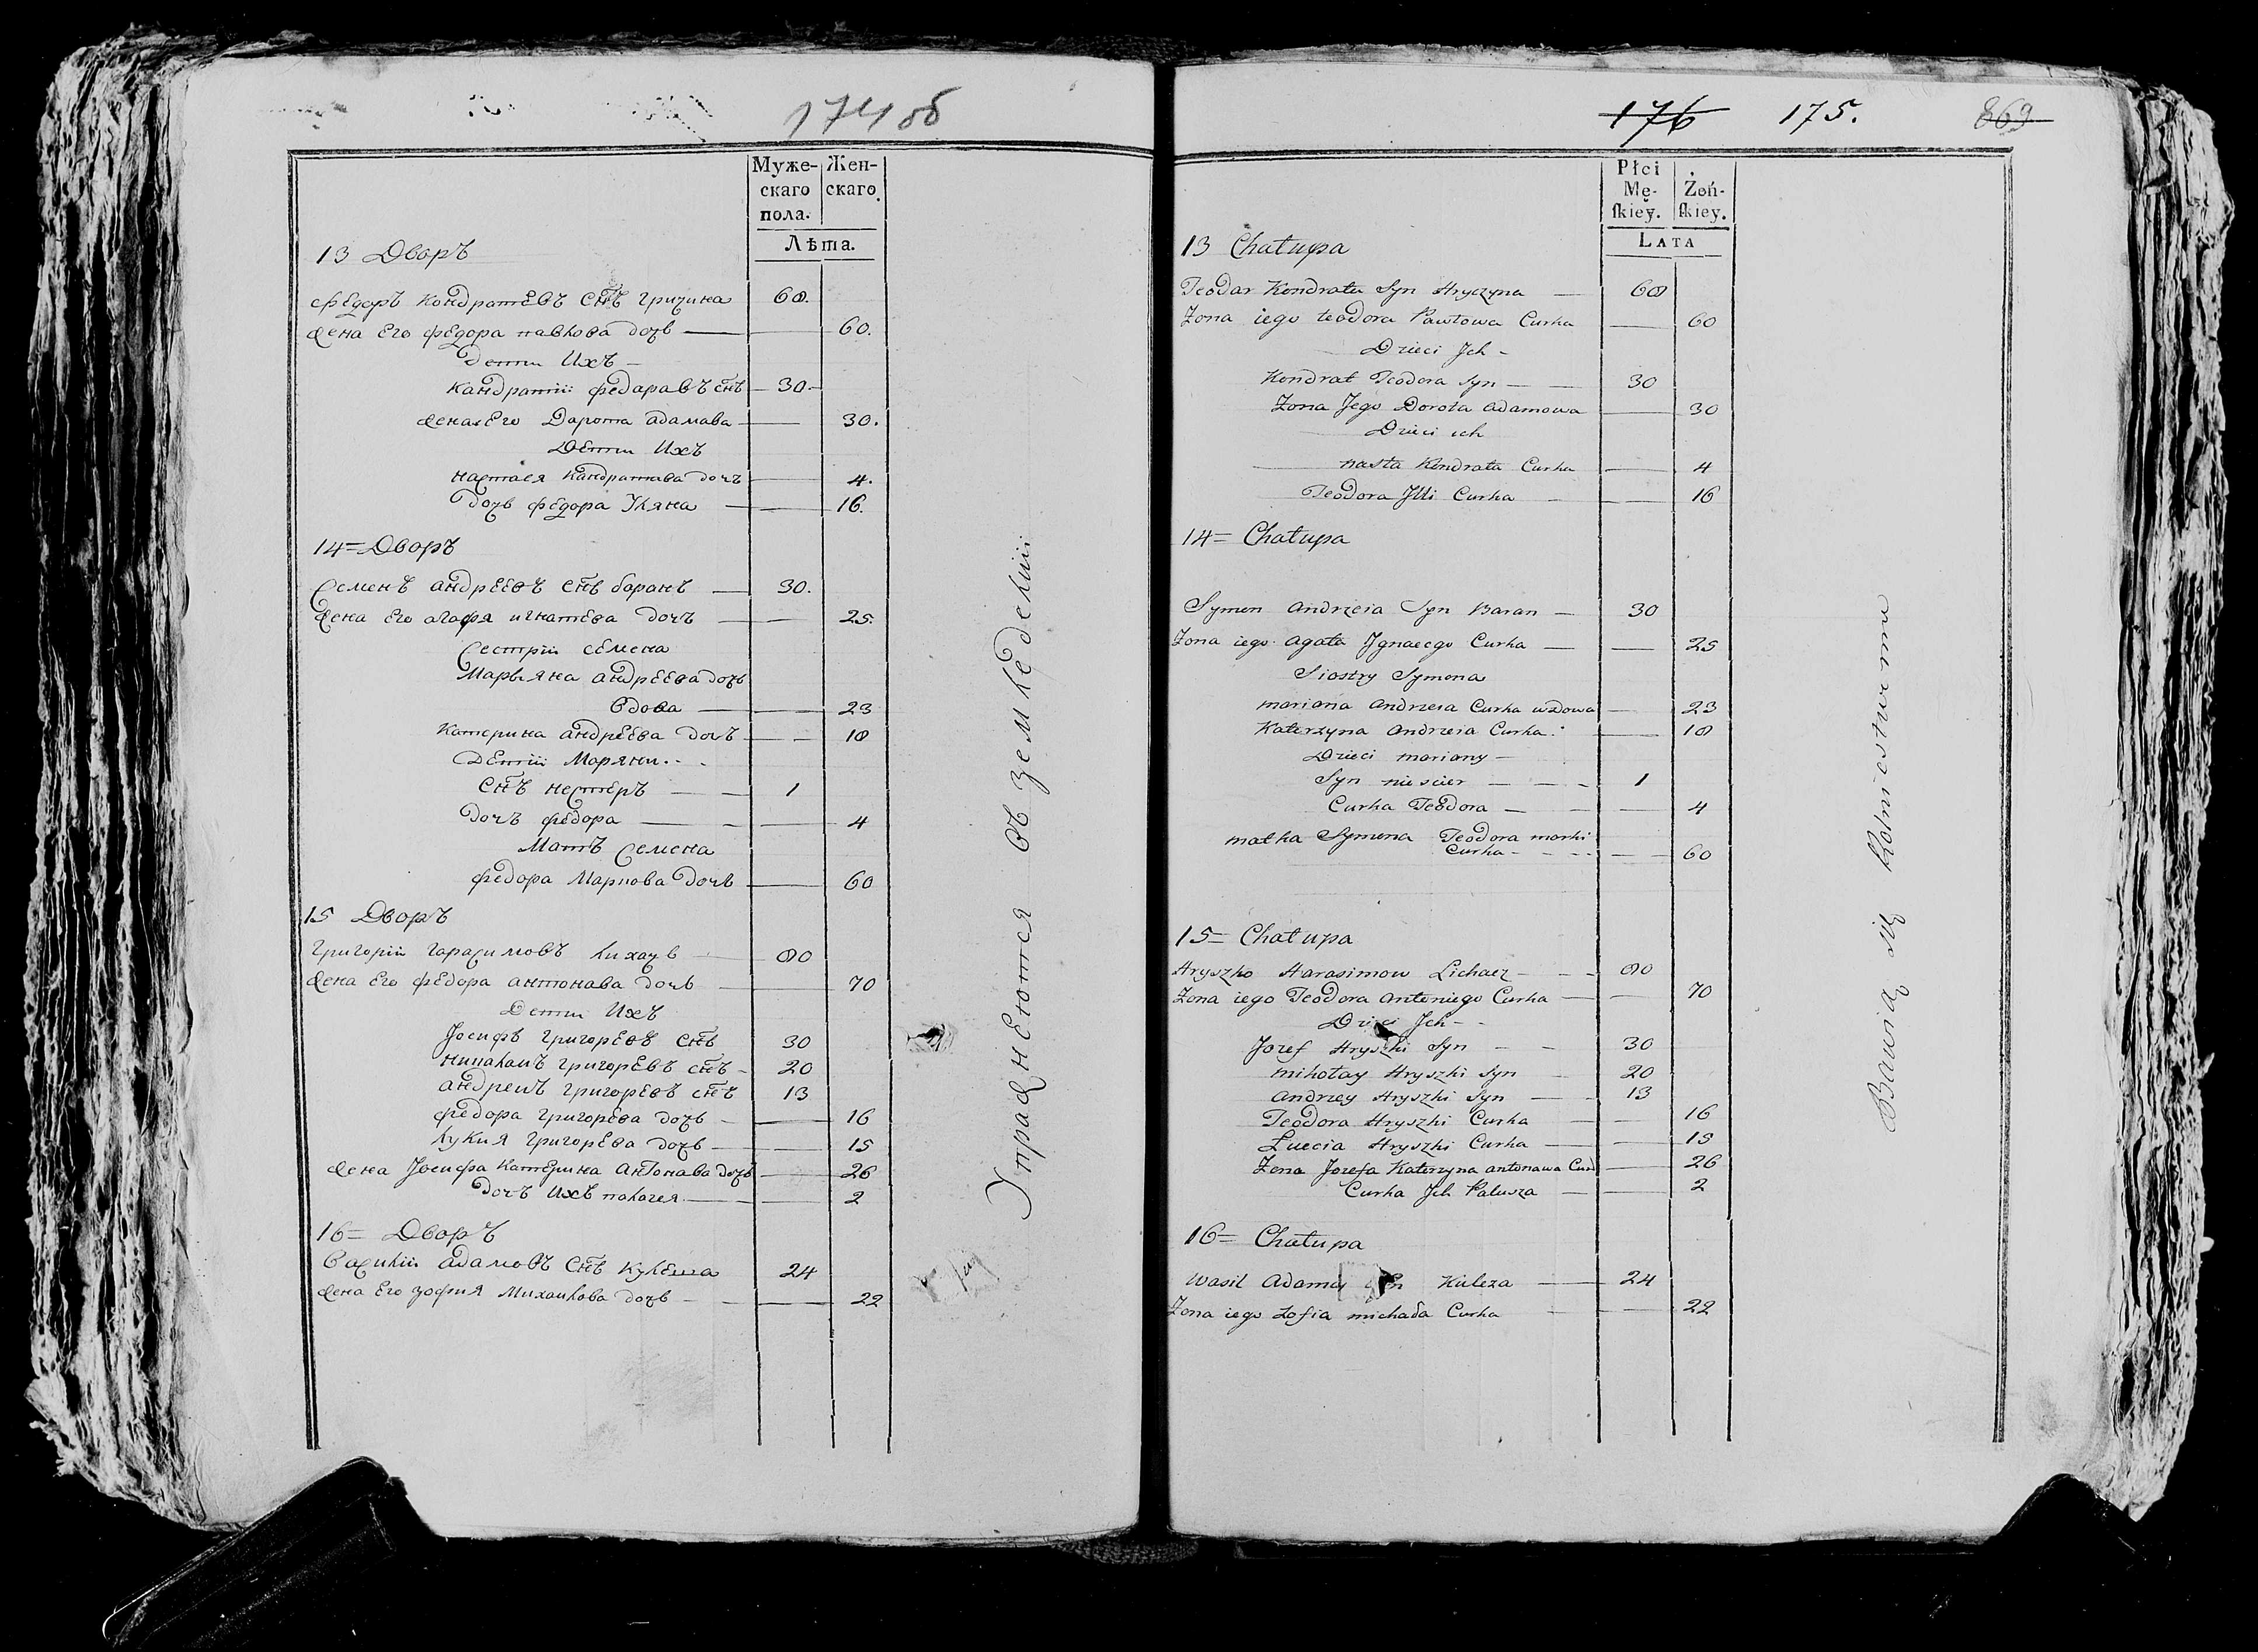 174 об
Муже-
скаго
пола.
Жен-
скаго.
Лѣта.
13 Дворъ
Федоръ Кондратевъ снъ Гричина 68.
Жена Его Федора павлова дочь 60.
Дети Ихъ
Кандратіи федаравъ снъ 30.
Жена Его Дарота адамава 30.
Дети Ихъ
Настася Кандратава дочь 4.
Дочь федора Уляна 16.
14= Дворъ
Семенъ андреевъ снъ баранъ 30.
Жена Его агафя игнатева дочь 25.
Сестріи семена
Марьяна андреева дочь
вдова 23
Катерина андреева дочь 18
Детіи Маряни
снъ нестеръ 1
дочь федора 4
Мать Семена
федора Маркова дочь 60
15 Дворъ
Григоріи гарасимовъ лихачъ 80
Жена Его федора антонава дочь 70
Дети Ихъ
Іосифъ григоревъ снъ 30
николаиъ григоревъ снъ 20
андреиъ григоревъ снъ 13
федора григорева дочь 16
лукия григорева дочь 15
Жена Іосифа Катерина антонава дочь 26
дочь Ихъ палагея 2
16= Дворъ
Василіи адамовъ снъ кулеша 24
Жена Его зофия Михаилова дочь 22
Упражнеются въ земледеліи
176 175. 869
Płci
Mę-
ſkieÿ.
Żeń-
ſkiey.
LATA
13 Chałupa
Teodar Kondrata Syn Hryczyna 68
Zona iego teodora Pawłowa Curka 60
Dzieci Jch
Kondrat Teodora Syn 30
Zona Jego Dorota adamowa 30
Dzieci ich
nasta Kondrata Curka 4
Teodora Jlli Curka 16
14= Chałupa
Symon andrzeia Syn Baran 30
Zona iego agata Jgnacego Curka 25
Siostry Symona
mariana andrzeia Curka wdowa 23
Katerzyna andrzeia Curka 18
Dzieci mariany
Syn niescier 1
Curka Teodora 4
matka Symona Teodora marki
Curka 60
15= Chałupa
Hryszko Harasimow Lichacz 80
Zona iego Teodora antoniego Curka 70
Dzieci Jch
Jozef Hryszki Syn 30
mikołay Hryszki Syn 20
andrzey Hryszki Syn 13
Teodora Hryszki Curka 16
Luccia Hryszki Curka 15
Zona Jozefa Katerzyna antonawa Curk 26
Curka Jch Palusza 2
16= Chałupa
Wasil Adama Syn Kulesza 24
Zona iego Zofia michała Curka 22
Bawią się Rolnictwema